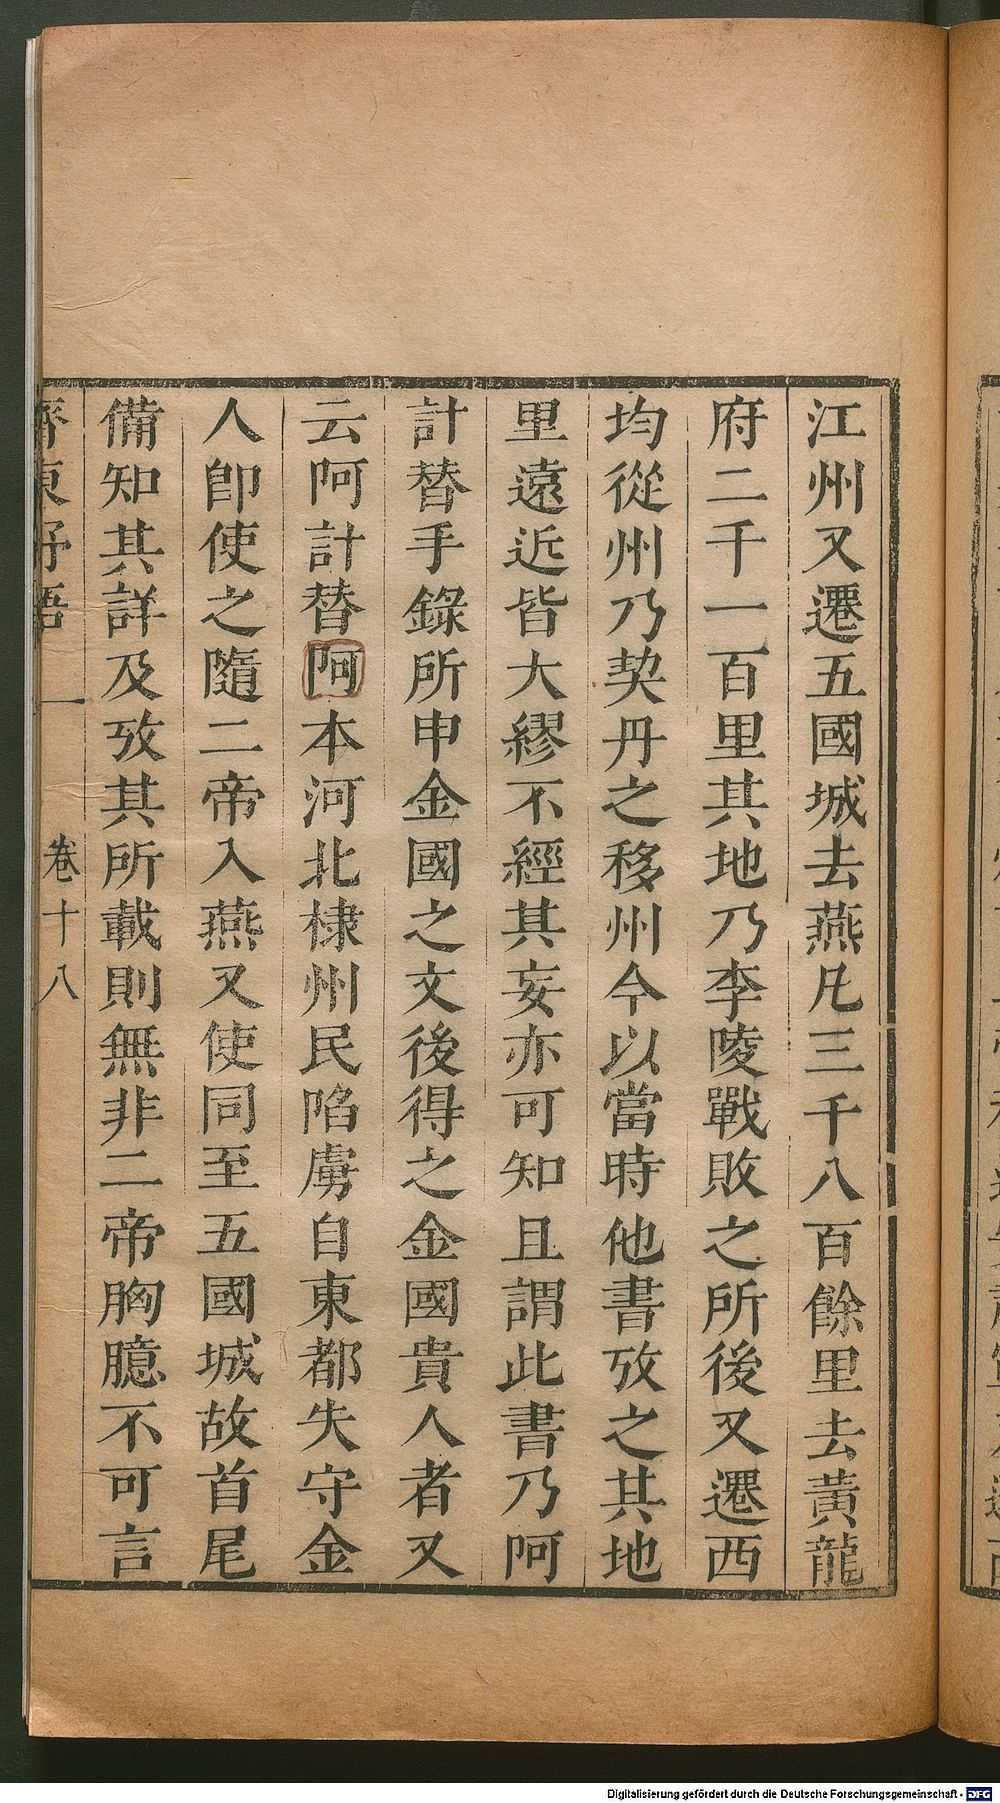 江州又遷五國城去燕凡三千八百餘里去黃龍
府二千一百里其地乃李陵戰敗之所後又遷西
均從州乃契丹之移州今以當時他書攷之其地
里遠近皆大繆不經其妄亦可知且謂此書乃阿
計替手錄所申金國之文後得之金國貴人者又
云阿計替阿本河北棣州民陷虜自東都失守金
人卽使之隨二帝入燕又使同至五國城故首尾
備知其詳及攷其所載則無非二帝胸臆不可言
齊東野語 卷十八
Digitalisierung gefördert durch die Deutsche Forschungsgemeinschaft - DFG